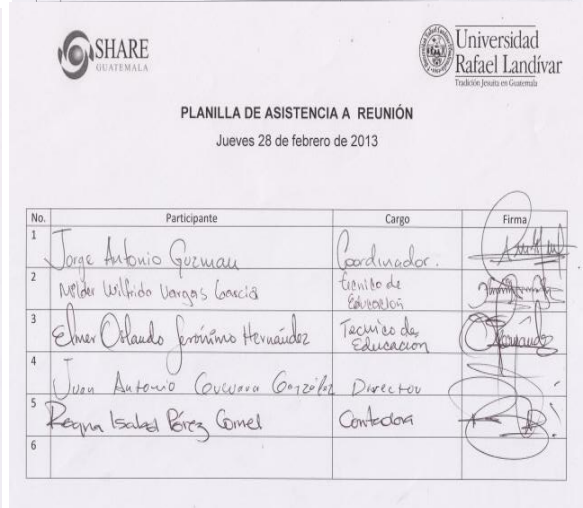 SHARE
GUATEMALA
Universidad
Rafael Landívar
Tradición Jesuita en Guatemala
PLANILLA DE ASISTENCIA A REUNIÓN
Jueves 28 de febrero de 2013
No. Participante Cargo Firma
1 Jorge Antonio Guzman Coordinador.
2 Wilfrido Vargas Garcia técnico de
Educación
3 Elmer Orlando Jerónimo Hernández Tecnico de
Educacion
4 Juan Antonio Guevara González Director
5 Regina Isabel Pérez Comel Contadora
6